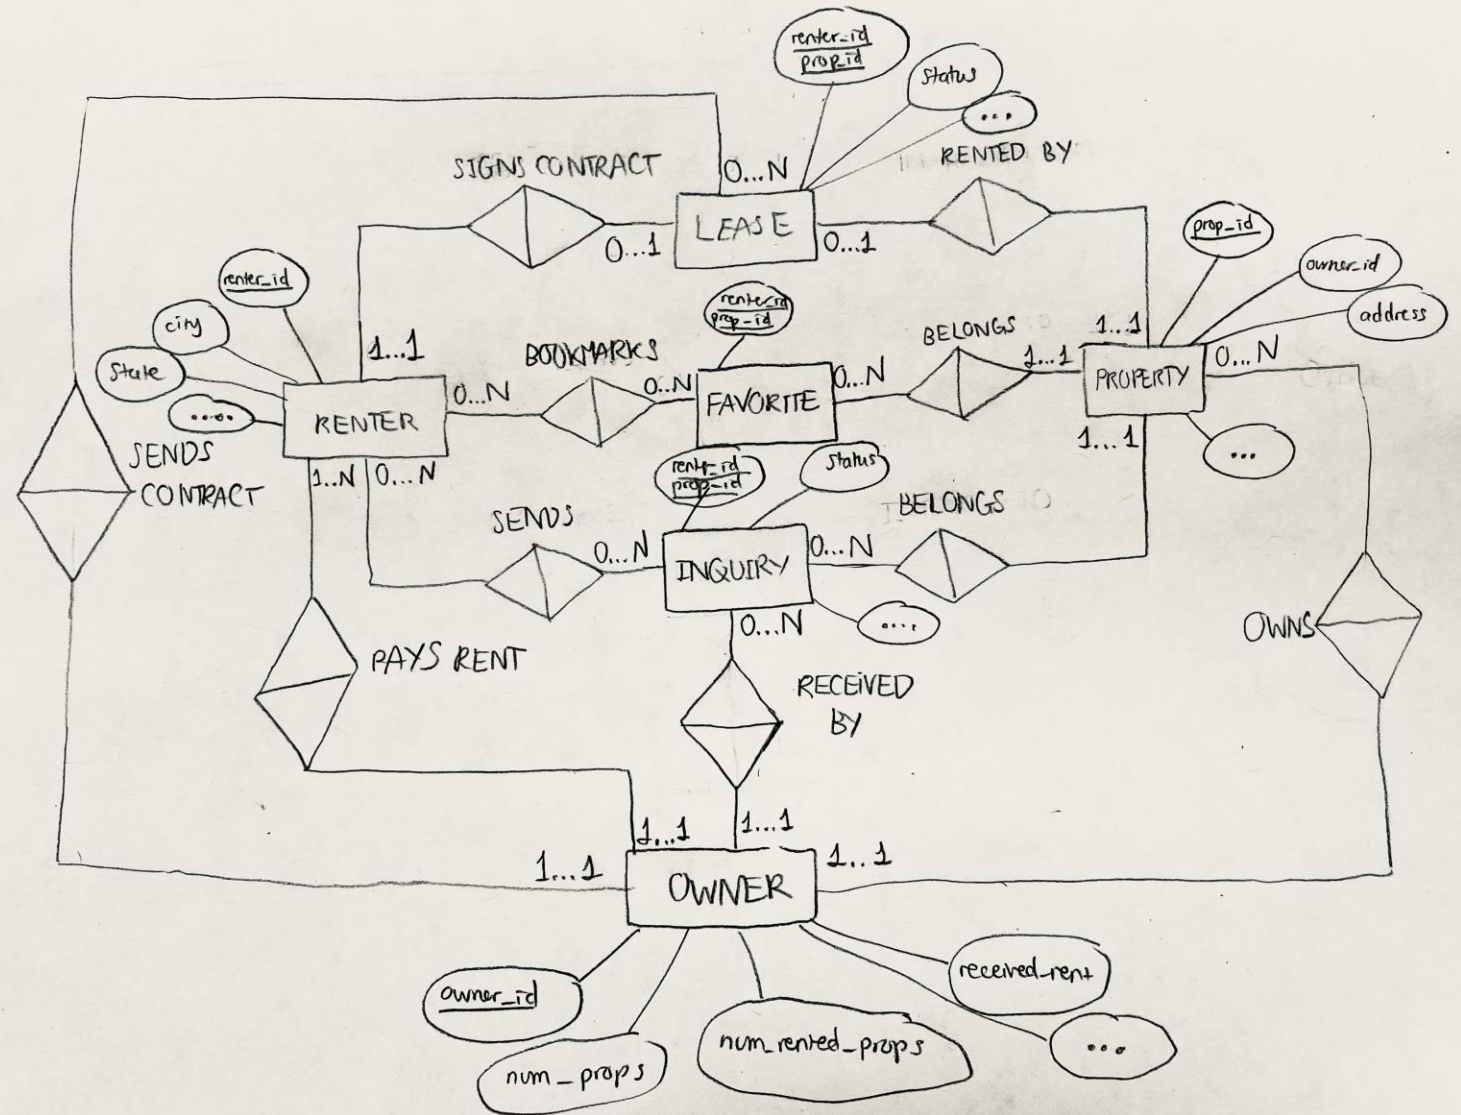 renter_id
prop_id
status
...
SIGNS CONTRACT
RENTED BY
0...N
LEASE
0...1
0...1
prop_id
owner_id
address
renter_id
city
state
....
renter_id
prop_id
1...1
BOOKMARKS
BELONGS
1...1
0...N
RENTER
0...N
0...N
FAVORITE
0...N
1...1
PROPERTY
1...1
...
SENDS
CONTRACT
1..N
0...N
renter_id
prop_id
status
SENDS
BELONGS
0...N
INQUIRY
0...N
0...N
....
OWNS
PAYS RENT
RECEIVED
BY
1...1
1...1
1...1
1...1
OWNER
owner_id
num_props
num_rented_props
received_rent
...